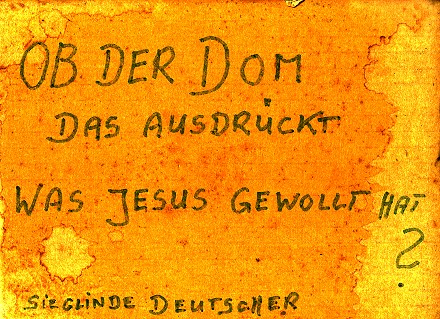 OB DER DOM
DAS AUSDRÜCKT
WAS JESUS GEWOLLT HAT
?
SIEGLINDE DEUTSCHER